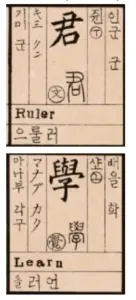 인군 군
君
君
文
キミ クン
기미 군
Ruler
으룰러
배울 학
學
學
覺
マナブ カク
마나부 각구
Learn
을러언